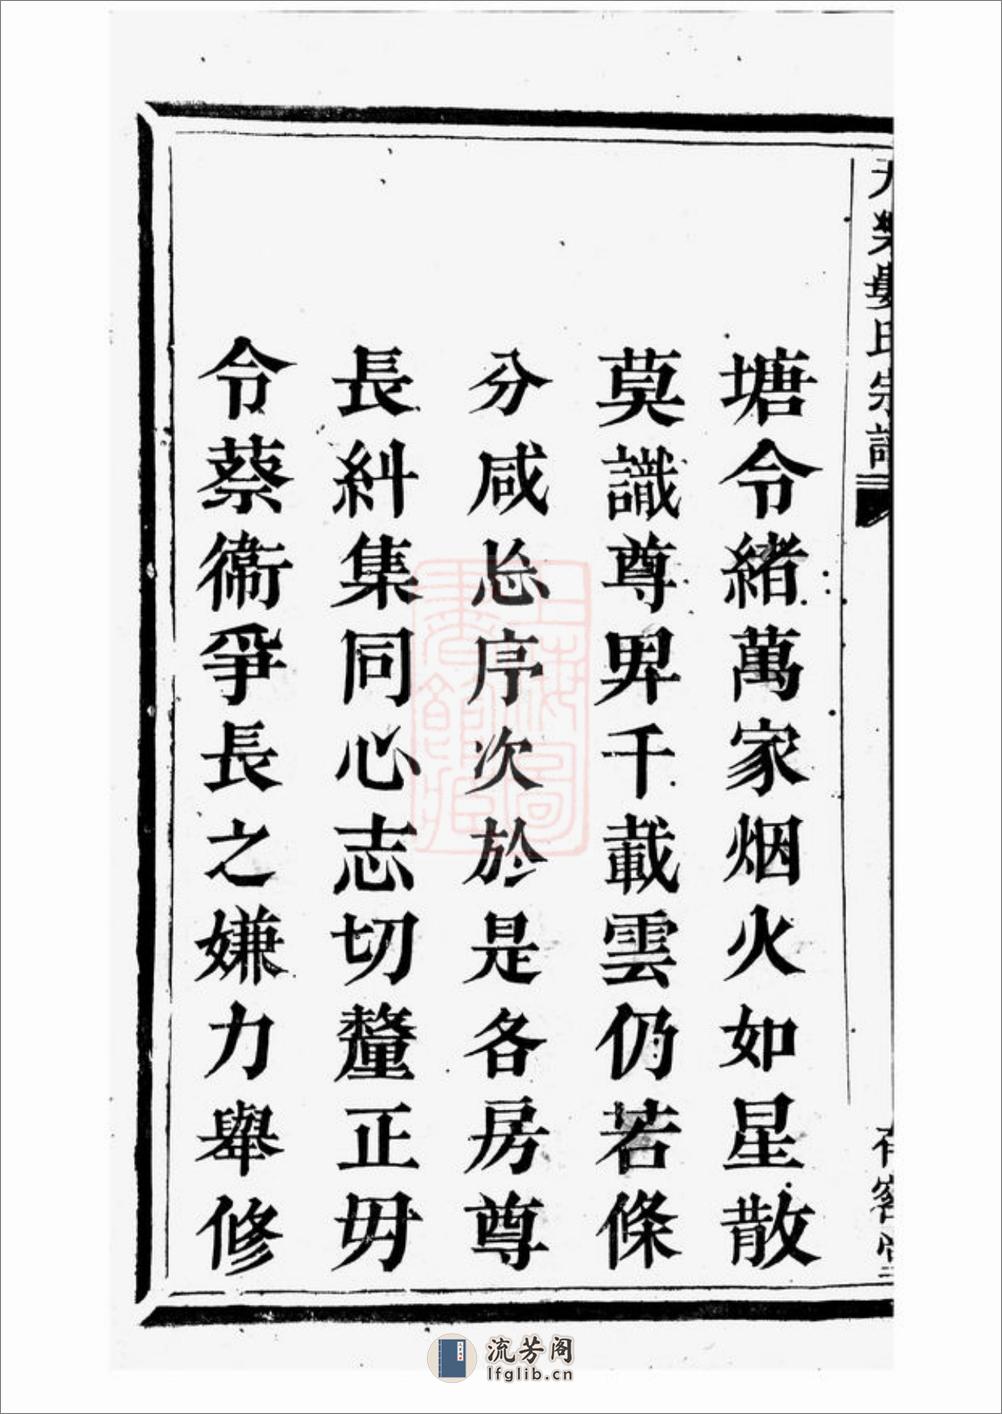 氏宗譜
塘令緒萬家烟火如星散
莫識尊卑千載雲仍若條
分咸忘序次於是各房尊
長糾集同心志切釐正毋
令蔡衞爭長之嫌力舉修
上海圖書館藏
流芳阁
lfglib.cn